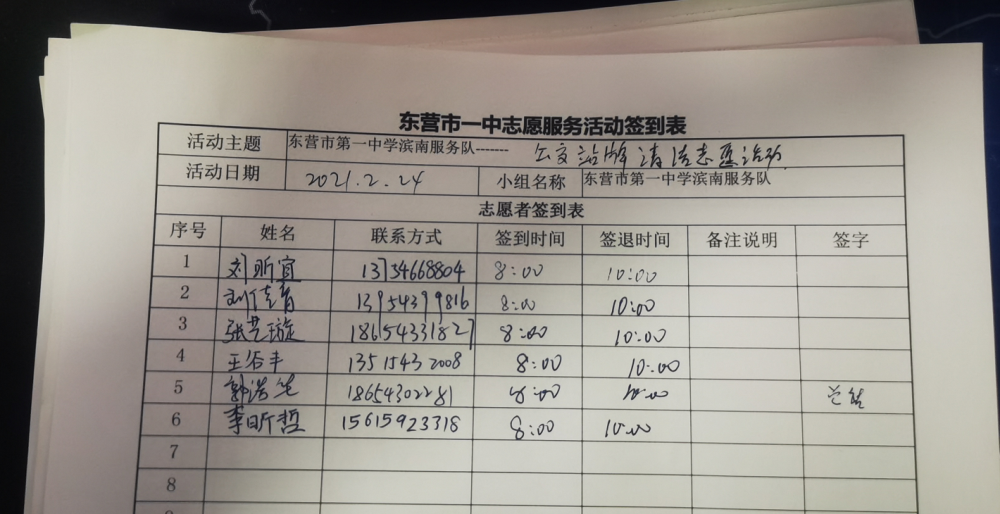 东营市一中志愿服务活动签到表
活动主题 东营市第一中学滨南服务队------- 公交站牌清洁志愿活动
活动日期 2021.2.24 小组名称 东营市第一中学滨南服务队
志愿者签到表
序号 姓名 联系方式 签到时间 签退时间 备注说明 签字
1 刘昕宜 13734668804 8:00 10:00
2 刘佳音 13954399816 8:00 10:00
3 张艺璇 18654331827 8:00 10:00
4 王谷丰 13515432008 8:00 10:00
5 郭浩 18654302281 8:00 10:00
6 李昕哲 15615923318 8:00 10:00
7
8